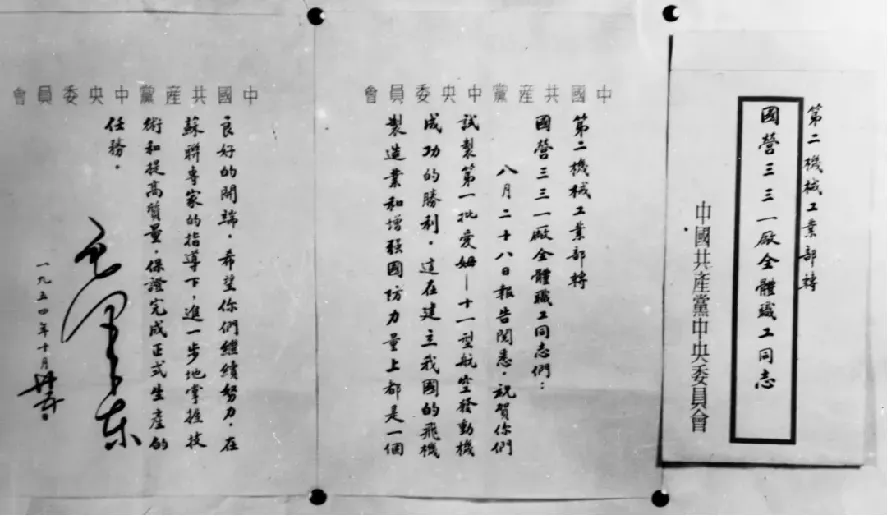 第二機械工業部轉
國營三三一廠全體職工同志
中國共產黨中央委員會
中國共產黨中央委員會
第二機械工業部轉
國營三三一廠全體職工同志們：
八月二十八日報告閱悉。祝賀你們
試製第一批愛姆—十一型航空發動機
成功的勝利。這在建立我國的飛機
製造業和增强國防力量上都是一個
中國共產黨中央委員會
良好的開端。希望你們繼續努力，在
蘇聯專家的指導下，進一步地掌握技
術和提高質量，保證完成正式生產的
任務。
毛澤東
一九五四年十月